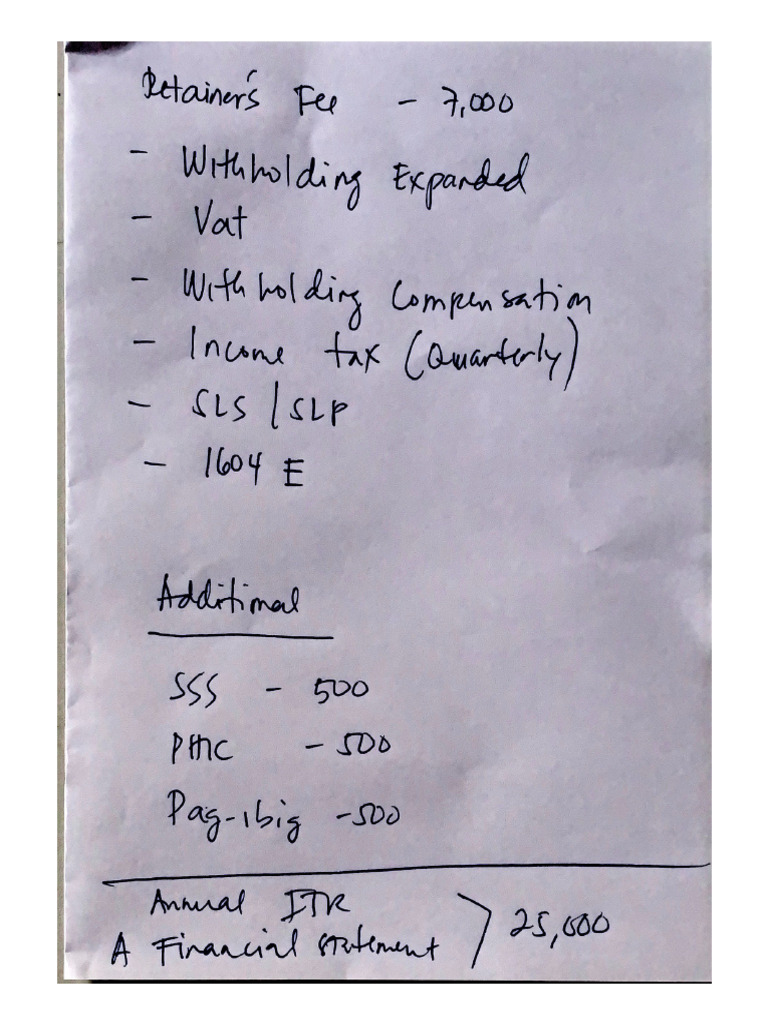 Retainer's Fee - 7,000
- Withholding Expanded
- Vat
- Withholding Compensation
- Income tax (Quarterly)
- SLS / SLP
- 1604 E
Additional
SSS - 500
PHIC - 500
Pag-ibig - 500
Annual ITR
A Financial statement > 25,000